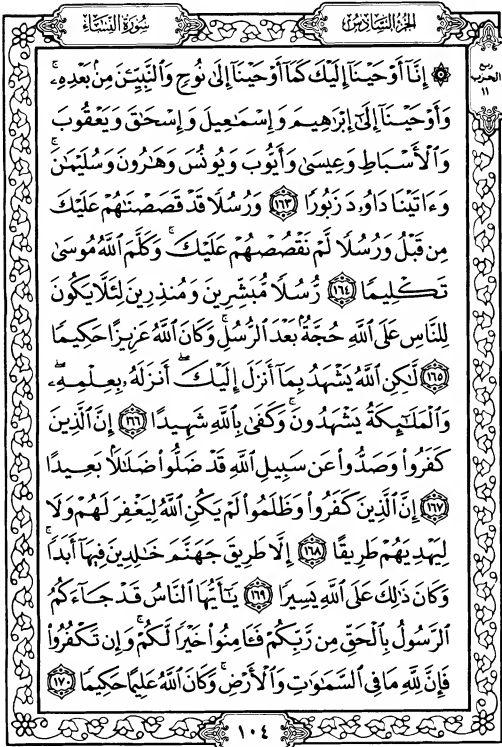 سُورَةُ النِّسَاءِ
الجُزْءُ السَّادِسُ
رُبع
الحِزْب
١١
۞ إِنَّآ أَوْحَيْنَآ إِلَيْكَ كَمَآ أَوْحَيْنَآ إِلَىٰ نُوحٍ وَٱلنَّبِيِّـۧنَ مِنۢ بَعْدِهِۦۚ
وَأَوْحَيْنَآ إِلَىٰٓ إِبْرَٰهِيمَ وَإِسْمَٰعِيلَ وَإِسْحَٰقَ وَيَعْقُوبَ
وَٱلْأَسْبَاطِ وَعِيسَىٰ وَأَيُّوبَ وَيُونُسَ وَهَٰرُونَ وَسُلَيْمَٰنَۚ
وَءَاتَيْنَا دَاوُۥدَ زَبُورًا ١٦٣ وَرُسُلًا قَدْ قَصَصْنَٰهُمْ عَلَيْكَ
مِن قَبْلُ وَرُسُلًا لَّمْ نَقْصُصْهُمْ عَلَيْكَۚ وَكَلَّمَ ٱللَّهُ مُوسَىٰ
تَكْلِيمًا ١٦٤ رُّسُلًا مُّبَشِّرِينَ وَمُنذِرِينَ لِئَلَّا يَكُونَ
لِلنَّاسِ عَلَى ٱللَّهِ حُجَّةٌۢ بَعْدَ ٱلرُّسُلِۚ وَكَانَ ٱللَّهُ عَزِيزًا حَكِيمًا
١٦٥ لَّٰكِنِ ٱللَّهُ يَشْهَدُ بِمَآ أَنزَلَ إِلَيْكَۖ أَنزَلَهُۥ بِعِلْمِهِۦۖ
وَٱلْمَلَٰٓئِكَةُ يَشْهَدُونَۚ وَكَفَىٰ بِٱللَّهِ شَهِيدًا ١٦٦ إِنَّ ٱلَّذِينَ
كَفَرُوا۟ وَصَدُّوا۟ عَن سَبِيلِ ٱللَّهِ قَدْ ضَلُّوا۟ ضَلَٰلًۢا بَعِيدًا
١٦٧ إِنَّ ٱلَّذِينَ كَفَرُوا۟ وَظَلَمُوا۟ لَمْ يَكُنِ ٱللَّهُ لِيَغْفِرَ لَهُمْ وَلَا
لِيَهْدِيَهُمْ طَرِيقًا ١٦٨ إِلَّا طَرِيقَ جَهَنَّمَ خَٰلِدِينَ فِيهَآ أَبَدًاۚ
وَكَانَ ذَٰلِكَ عَلَى ٱللَّهِ يَسِيرًا ١٦٩ يَٰٓأَيُّهَا ٱلنَّاسُ قَدْ جَآءَكُمُ
ٱلرَّسُولُ بِٱلْحَقِّ مِن رَّبِّكُمْ فَـَٔامِنُوا۟ خَيْرًا لَّكُمْۚ وَإِن تَكْفُرُوا۟
فَإِنَّ لِلَّهِ مَا فِى ٱلسَّمَٰوَٰتِ وَٱلْأَرْضِۚ وَكَانَ ٱللَّهُ عَلِيمًا حَكِيمًا ١٧٠
١٠٤